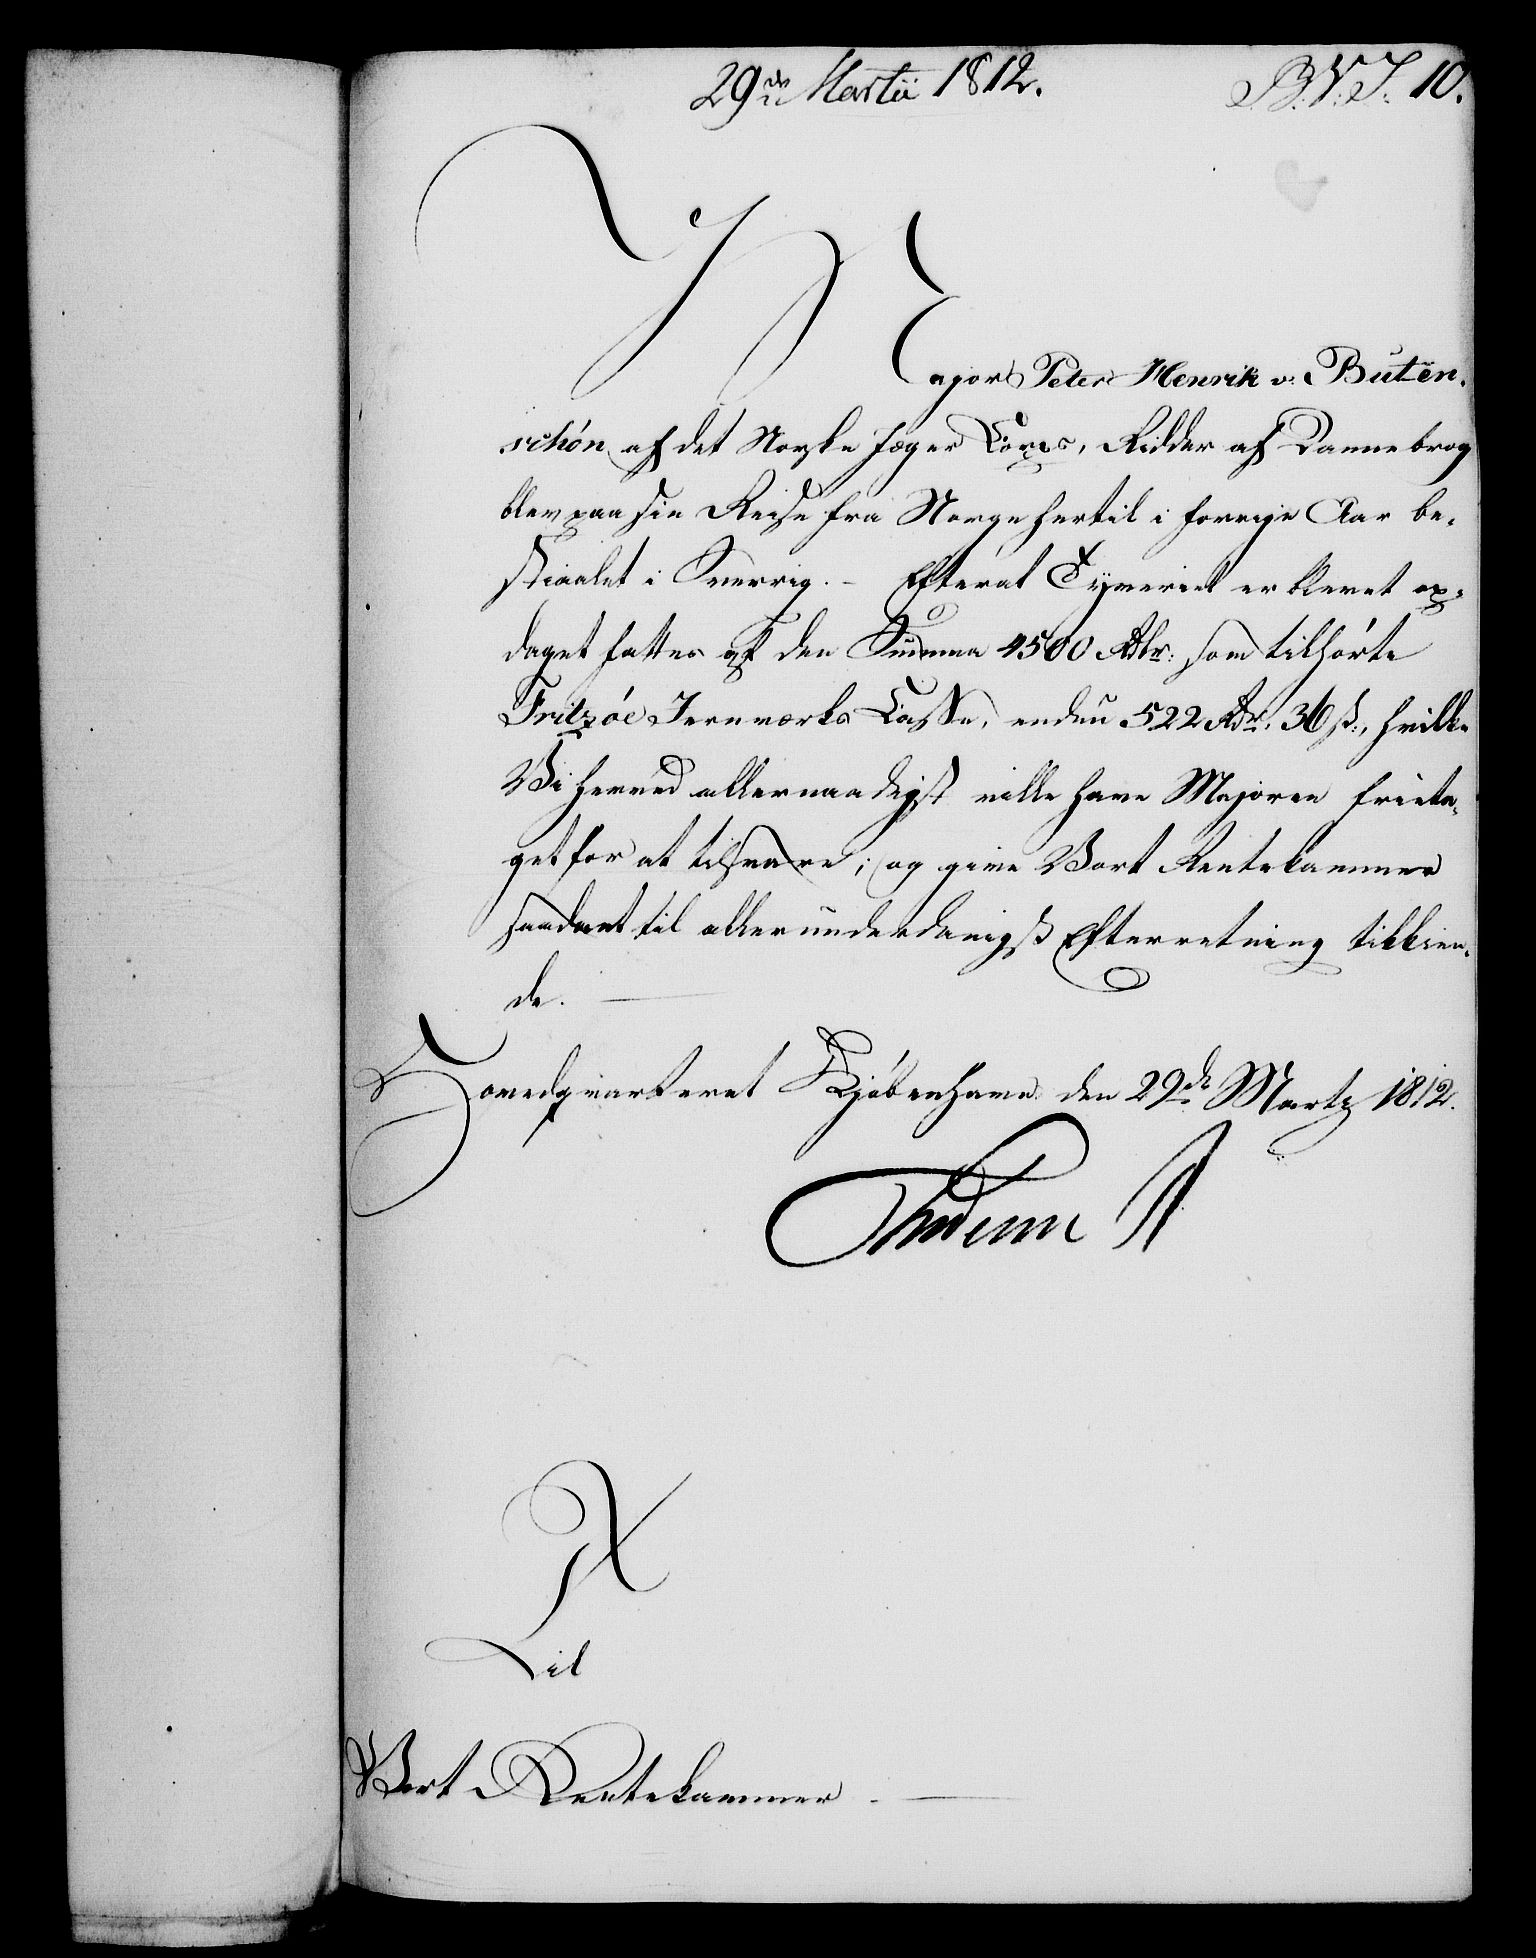 29de Martii 1812.
B.V.J. 10.
Major Peter Henrik v. Buten-
schön af det Norske Jæger Corps, Ridder af Dannebrog
blev paa sin Reise fra Norge hertil i forrige Aar be-
stiaalet i Sverrig. – Efterat Tyveriet er blevet op-
daget fattes af den Summa 4500 Rdlr. som tilhörte
Fritzöe Jernværks Casse, endnu 522 Rdr. 36 ß., hvilke
Vi herved allernaadigst ville have Majoren frita-
get for at tilsvare; og give Vort Rentekammer
saadant til allerunderdanigst Efterretning tilkien-
de.
Hovedqvarteret Kjöbenhavn den 29de Martz 1812.
Frederik R
Til
Vort Rentekammer.